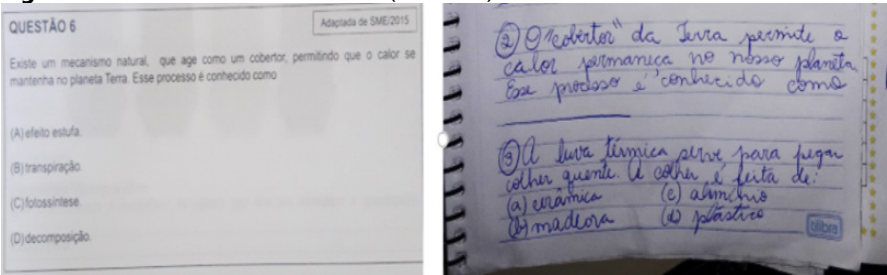 QUESTÃO 6
Adaptada de SME/2015
Existe um mecanismo natural, que age como um cobertor, permitindo que o calor se
mantenha no planeta Terra. Esse processo é conhecido como
(A) efeito estufa.
(B) transpiração.
(C) fotossíntese.
(D) decomposição.
② O "cobertor" da Terra permite o
calor permaneça no nosso planeta
Esse processo é conhecido como
③ A luva térmica serve para pegar
colher quente. A colher é feita de:
(a) cerâmica (c) alumínio
(b) madeira (d) plástico
tilibra